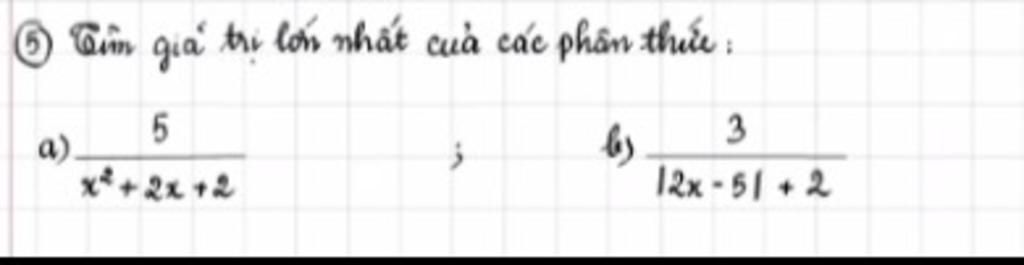 ⑤ Tìm giá trị lớn nhất của các phân thức:
a) 5/(x² + 2x + 2) ; b) 3/(|2x - 5| + 2)